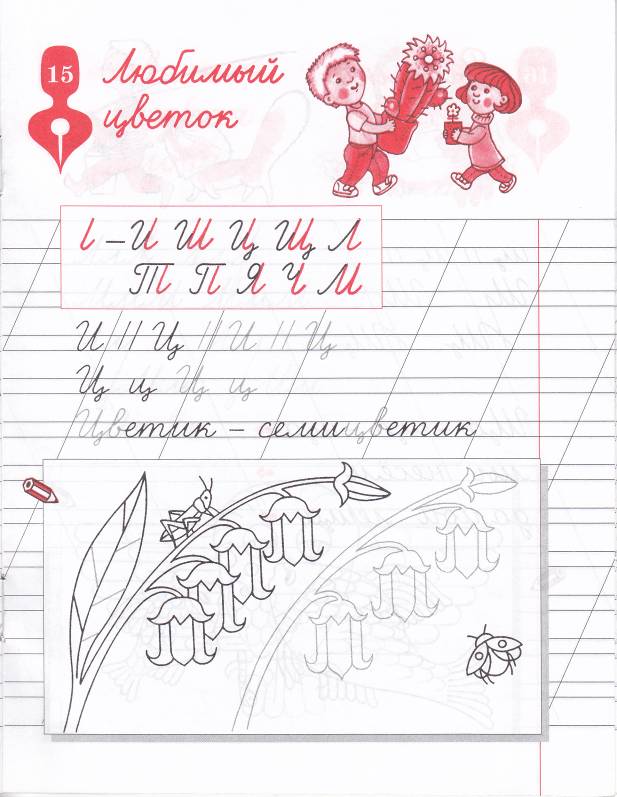 15
Любимый
цветок
І – И Ш Ц Щ Л
Т П Я Ч М
И // Ц // И // Ц
Ц ц Ц ц
Цветик – семицветик